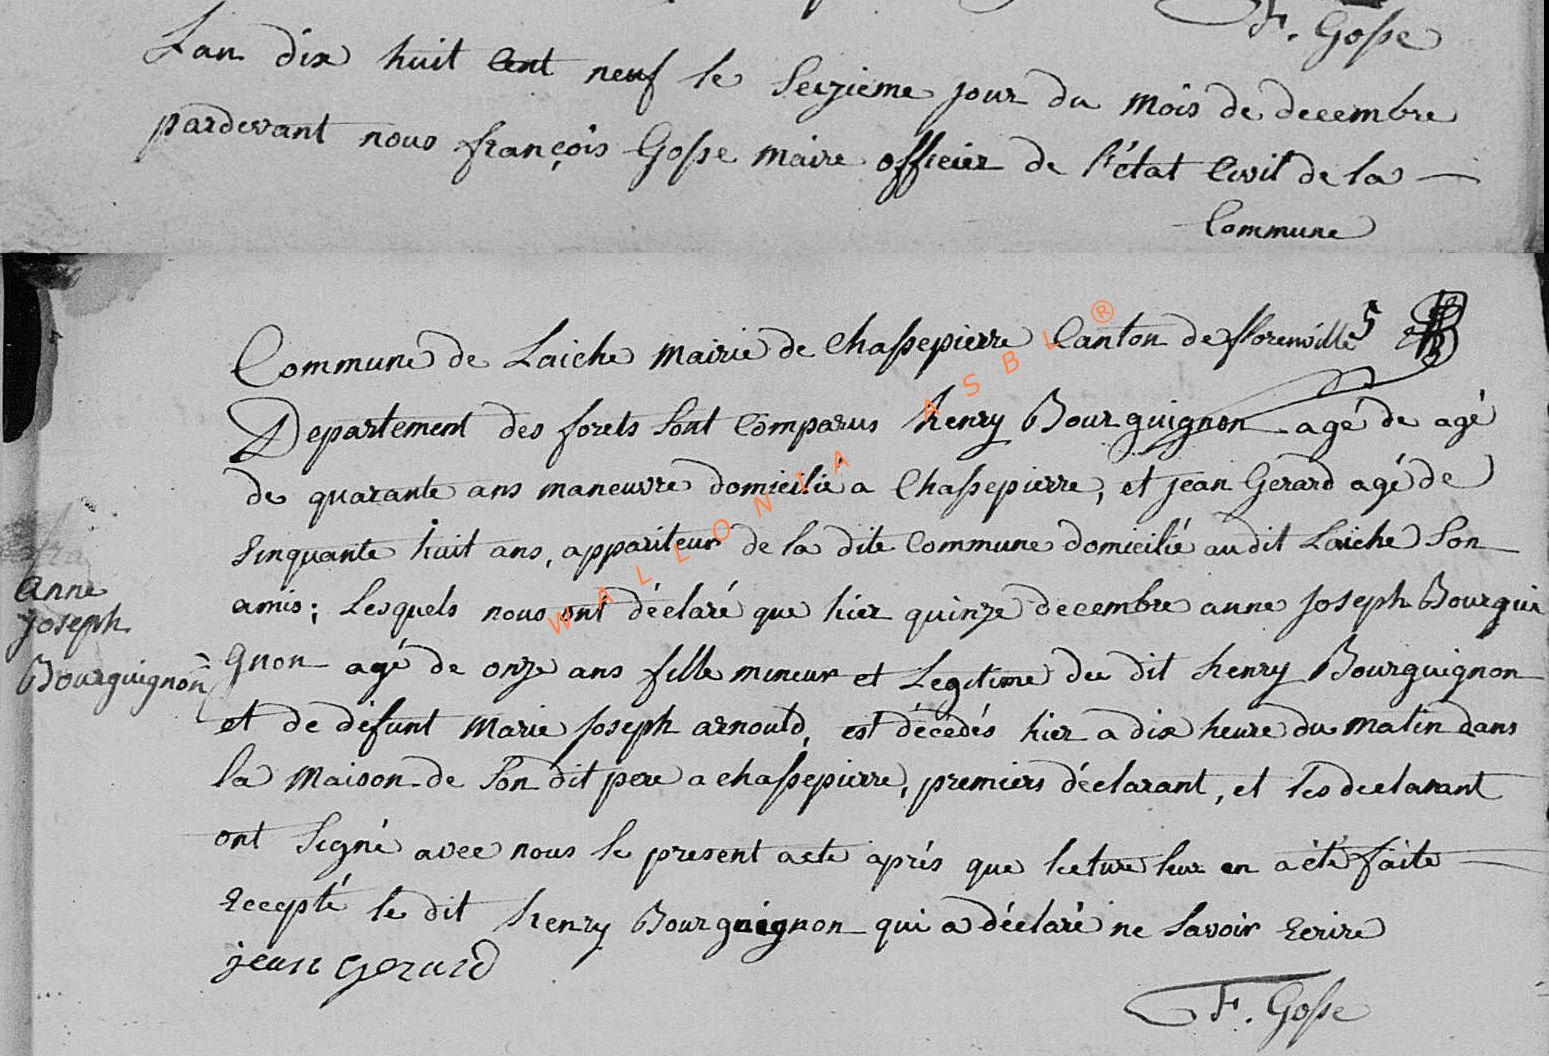 F. Gosse
Lan dix huit cent neuf le Seizieme jour du mois de decembre
pardevant nous françois Gosse maire officier de l'état Civil de la —
Commune
Commune de Laiche mairie de Chassepierre Canton de florenville 5
Departement des forets Sont Comparus henry Bourguignon agé de agé
de quarante ans maneuvre domicilié a Chassepierre, et jean Gerard agé de
Sinquante huit ans, appariteur de la dite Commune domicilié audit Laiche Son
amis; Lesquels nous ont déclaré que hier quinze decembre anne joseph Bourgui
anne
joseph
Bourguignon
gnon agé de onze ans fille mineur et Legitime du dit henry Bourguignon
et de défunt Marie joseph arnould, est décédés hier a dix heure du matin dans
la maison de Son dit pere a chassepierre, premiers déclarant, et les declarant
ont Signé avec nous le present acte aprés que lecture leur en a été faite
Ecepté le dit henry Bourguignon qui a déclaré ne Savoir Ecrire
jean Gerard
F. Gosse
WALLONIA ASBL ®